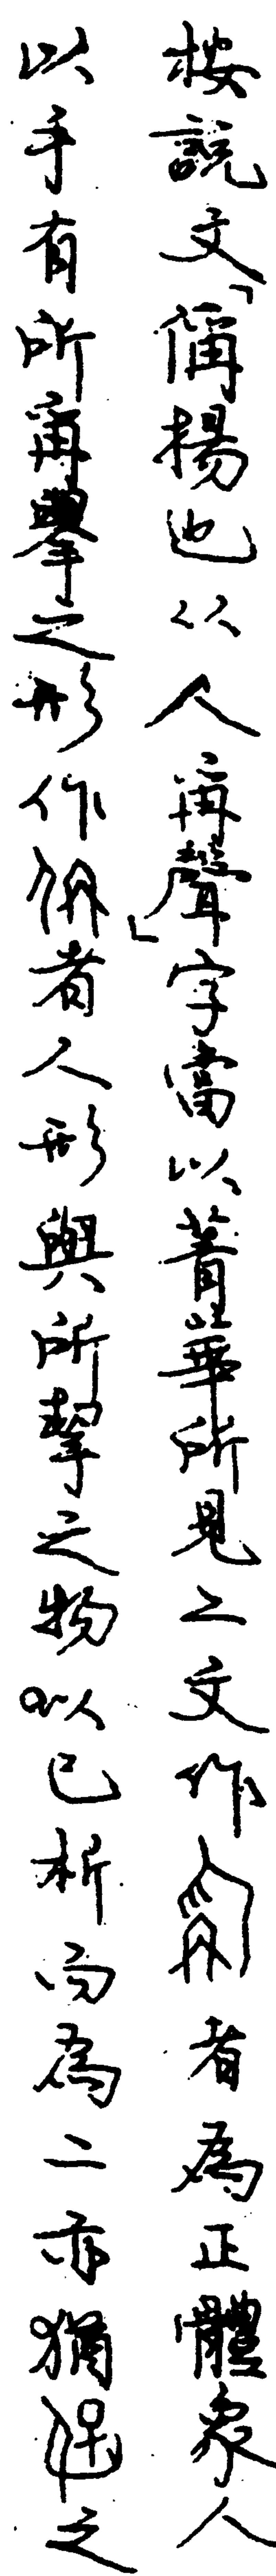 按説文「偁揚也从人爯聲」字當以菁華所見之文作者為正體象人
以手有所爯舉之形作偁者人形與所挈之物以已析而為二亦猶之